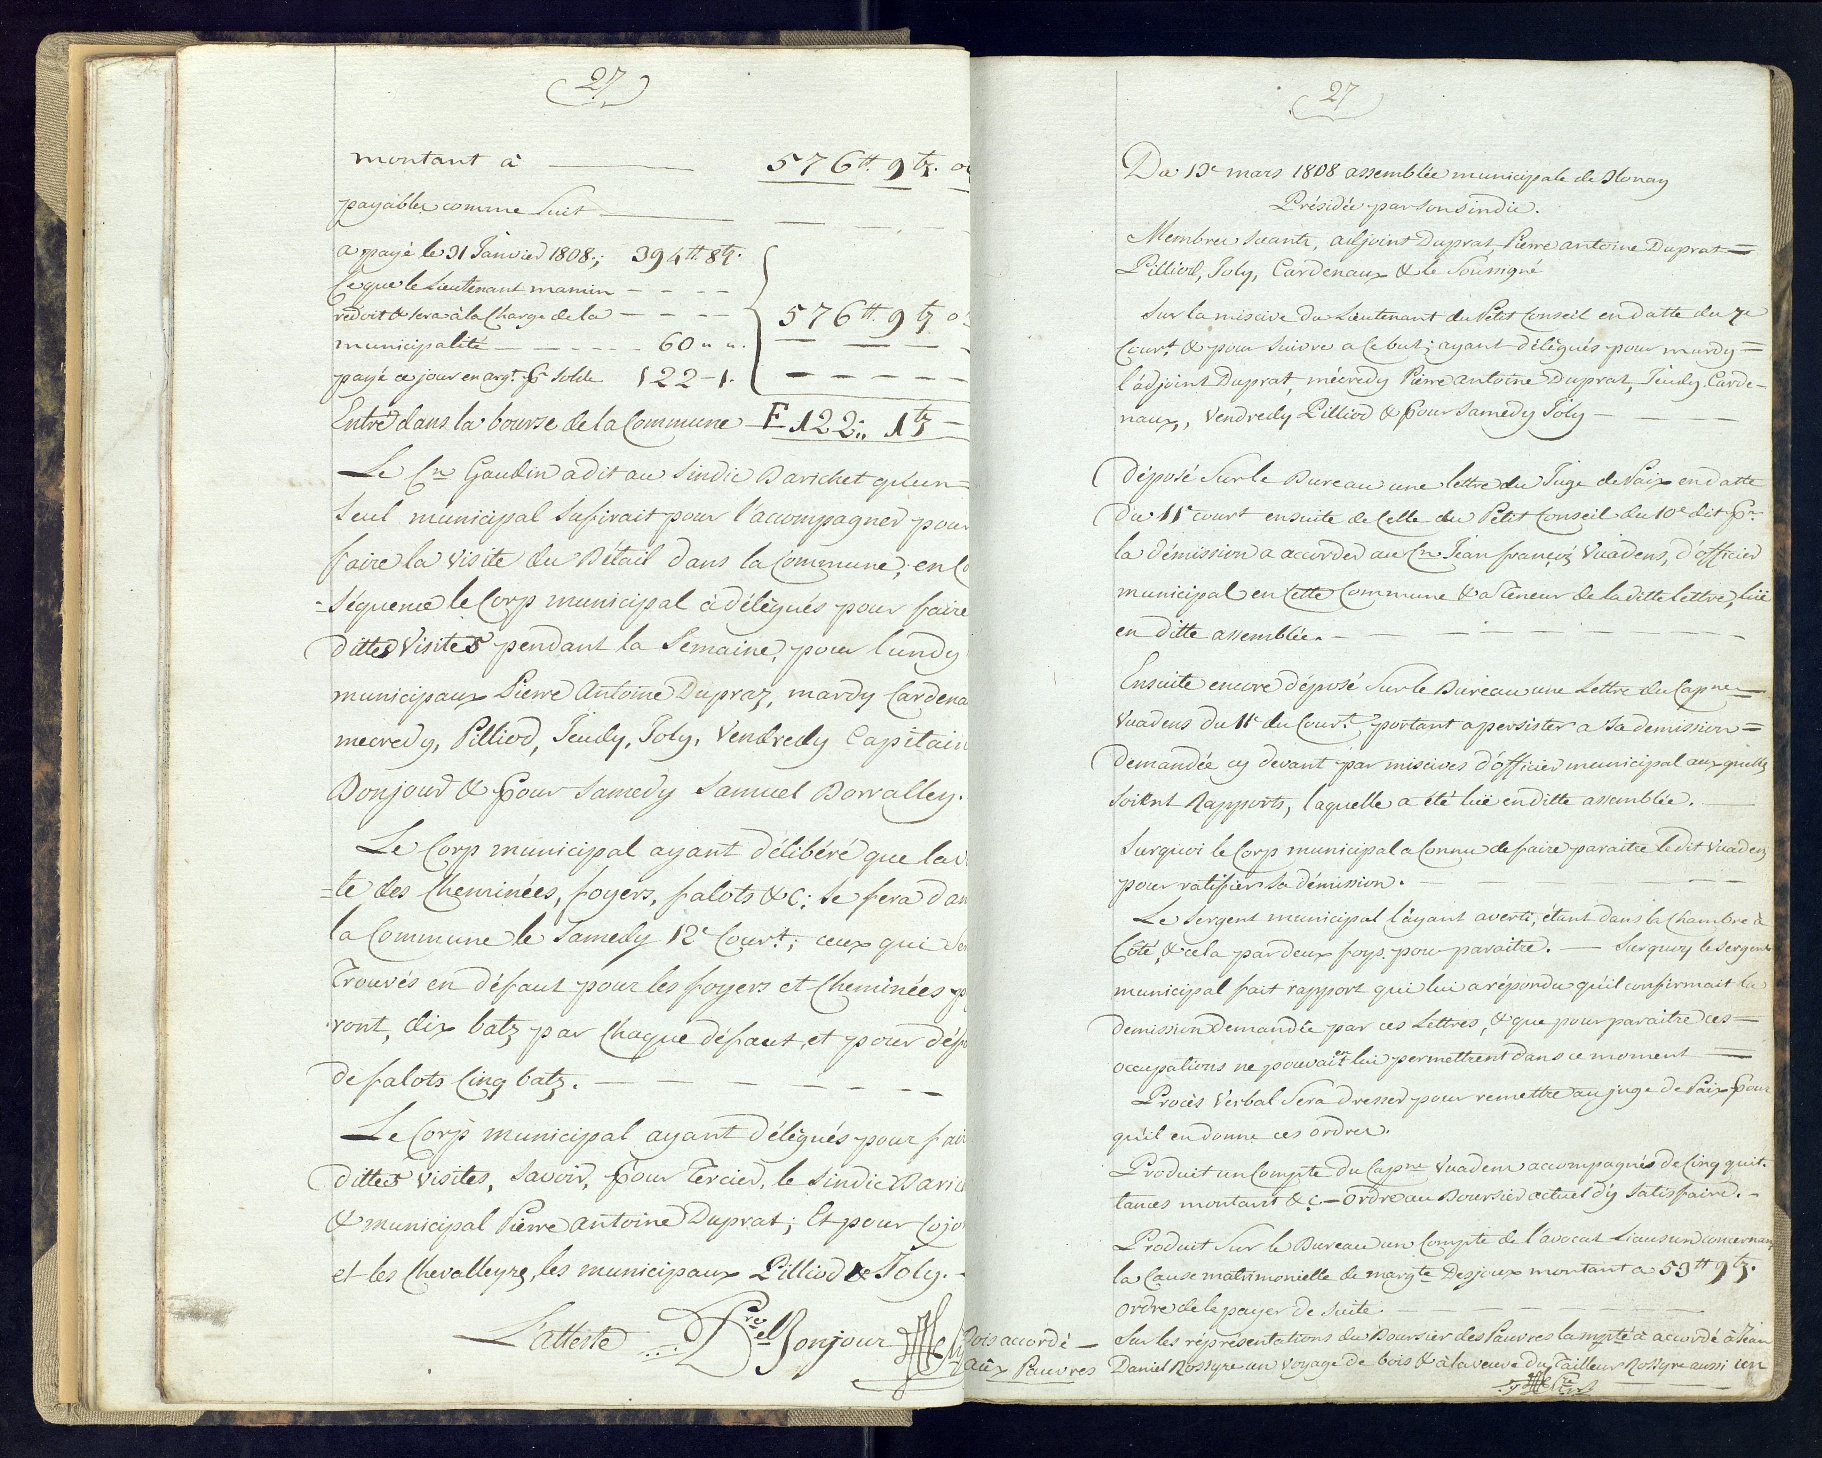 27
montant à — 576 ₶. 9 bz.
payables comme Suit
a payé le 31 Janvier 1808; 394 ₶ 8 bz.
Ce que le Lieutenant mamin
redoit & sera à la Charge de la
municipalité 60 " ".
576 ₶. 9 bz
payé ce jour en argt. pr Solde 122 - 1.
Entré dans la bourse de la Commune F 122 " 1 bz
Le Cn Gaudin a dit au Sindic Barichet qu'un
Seul municipal Sufirait pour l'acompagner pour
faire la visite du Bétail dans la Commune; en Co
=séquence le Corp municipal à délégués pour faire
dittes Visites pendant la Semaine, pour lundy
municipaux Pierre Antoine Dupraz, mardy Cardena
mecredy, Pilliod, Jeudy, Joly, Vendredy Capitain
Bonjour & pour Samedy Samuel Borralley.
Le Corp municipal ayant délibéré que la v
=te des Cheminées, foyers, falots &c: Se fera dan
la Commune le Samedy 12e Court; ceux qui ser
Trouvés en défaut pour les foyers et Cheminées p
ront, dix batz par Chaque défaut, et pour défa
de falots Cinq batz.
Le Corp municipal ayant délégués pour fair
dittes visites, Savoir, pour Tercier, le Sindic Baric
& municipal Pierre antoine Duprat; Et pour Cojo
et les Chevalleyrs, les municipaux Pilliod & Joly.
L'atteste Bonjour
27
Du 13e mars 1808 assemblée municipale de Blonay
Présidée par son sindic.
Membres Séants, adjoint Duprat, Pierre antoine Duprat=
Pilliod, Joly, Cardenaux & le Soussigné
Sur la miscive du Lieutenant du Petit Conseil en datte du 7e
Court & pour Suivre a Ce but; ayant délégués pour mardy=
l'adjoint Duprat, mécredy Pierre antoine Duprat, Jeudy Carde-
naux, Vendredy Pilliod & pour Samedy Joly
déposé Sur le Bureau une lettre du Juge de Paix en datte
du 11e court ensuite de Celle du Petit Conseil du 10e dit pr
la démission a accorder au Cn Jean françois Vuadens, d'officier
municipal en Cette Commune & a Teneur de la ditte Lettre, lüe
en ditte assemblée.
Ensuite encore déposé Sur le Bureau une Lettre du Capne=
Vuadens du 11e du Court portant a persister a Sa demission=
demandée cy devant par miscives d'officier municipal aux quelles
Soient Rapports, laquelle a été lüe en ditte assemblée.
Surquoi le Corp municipal a Connu de faire paraitre ledit Vuadens
pour ratifier Sa démission.
Le Sergent municipal l'ayant averti, étant dans la Chambre à
Côté, & cela par deux foys, pour paraitre. — Surquoy le Sergent
municipal fait rapport qui lui a répondu qu'il confirmait la
demission Demandée par ces Lettres, & que pour paraitre ces=
occupations ne pouvaient lui permettrent dans ce moment=
Procès Verbal Sera dresser pour remettre au juge de Paix pour
qu'il en donne ces ordres.
Produit un Compte du Capne Vuadens accompagnés de Cinq quit-
tances montant &c — ordre au Boursier actuel d'y Satisfaire.
Produit Sur le Bureau un Compte de l'avocat Liausun concernant
la Cause matrimonielle de margte Desjoux montant a 53 ₶ 9 bz.
ordre de le payer de Suite.
Bois accordé
aux Pauvres
Sur les réprésentations du Boursier des Pauvres la mpté à accordé à Jean
Daniel Rossyre un voyage de bois & à la veuve du Tailleur Rossyre aussi un